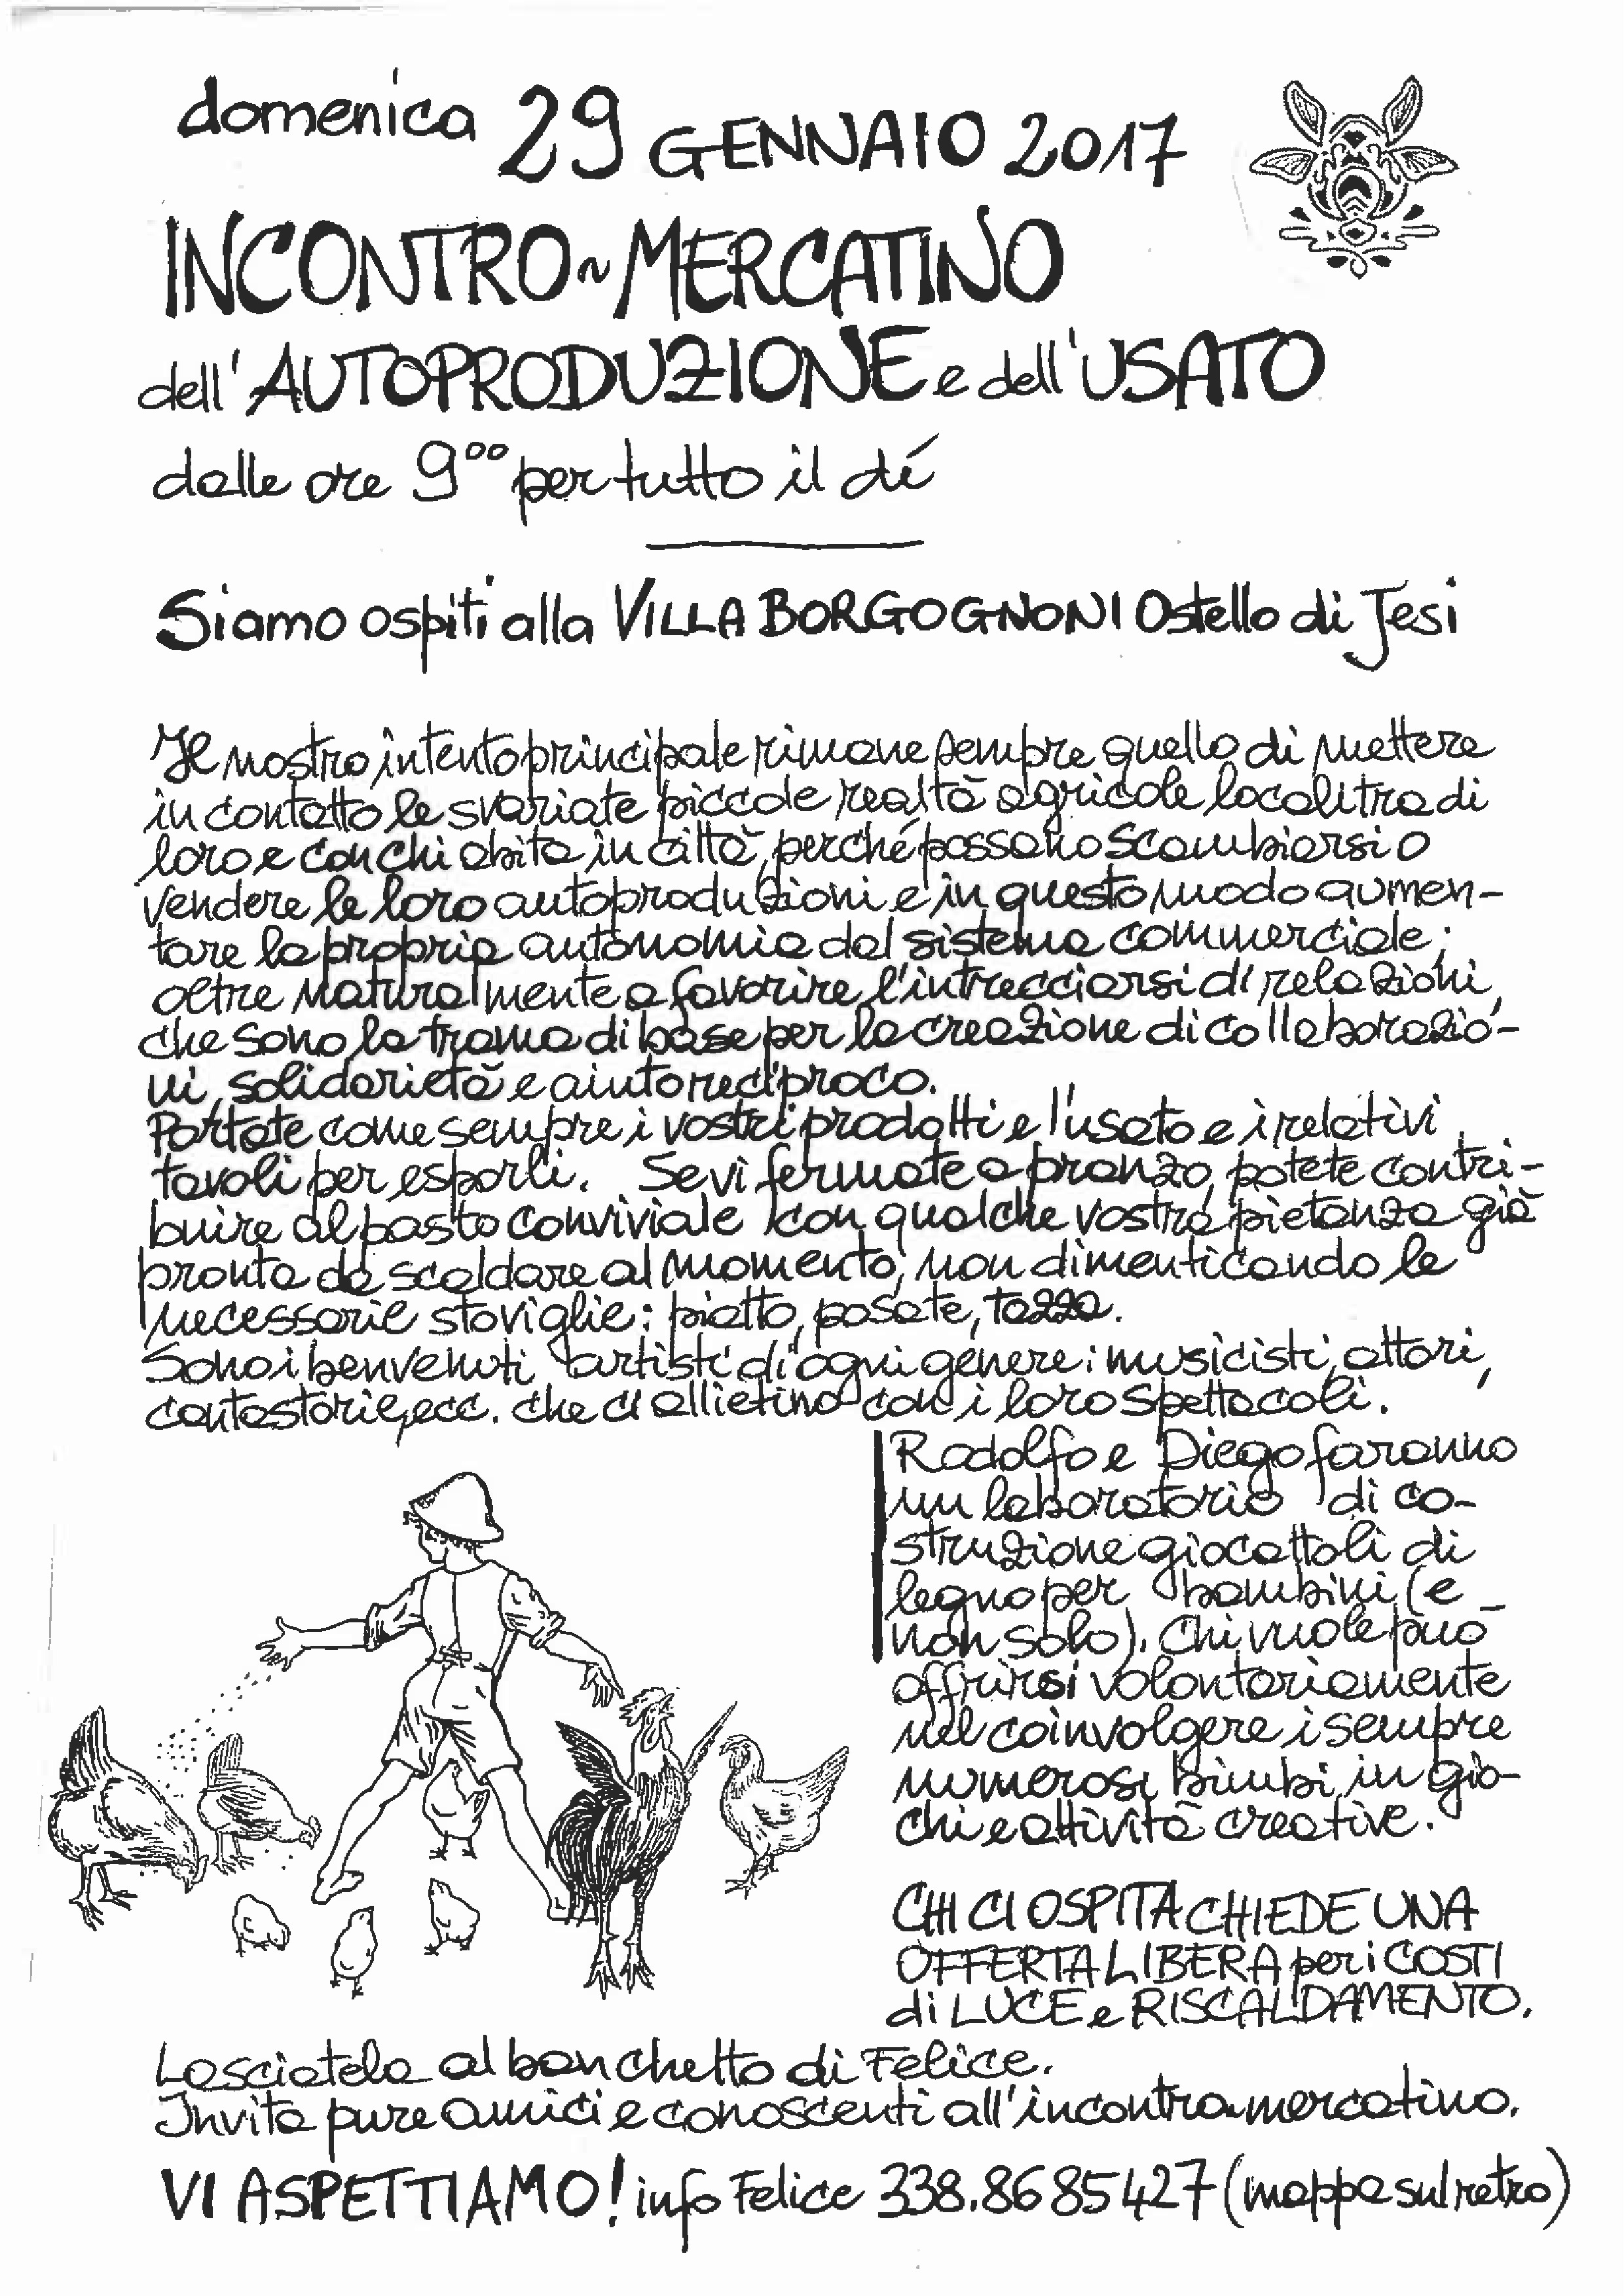 domenica 29 GENNAIO 2017
INCONTRO~MERCATINO
dell'AUTOPRODUZIONE e dell'USATO
dalle ore 9⁰⁰ per tutto il dí
Siamo ospiti alla VILLA BORGOGNONI Ostello di Jesi
Il nostro intento principale rimane sempre quello di mettere
in contatto le svariate piccole realtà agricole locali tra di
loro e con chi abita in città, perché possano scambiarsi o
vendere le loro autoproduzioni e in questo modo aumen-
tare la propria autonomia dal sistema commerciale;
oltre naturalmente a favorire l'intrecciarsi di relazioni,
che sono la trama di base per la creazione di collaborazio-
ni, solidarietà e aiuto reciproco.
Portate come sempre i vostri prodotti e l'usato e i relativi
tavoli per esporli. Se vi fermate a pranzo, potete contri-
buire al pasto conviviale con qualche vostra pietanza già
pronta da scaldare al momento, non dimenticando le
necessarie stoviglie: piatto, posate, tazza.
Sono i benvenuti artisti di ogni genere: musicisti, attori,
cantastorie, ecc. che ci allietino con i loro spettacoli.
Rodolfo e Diego faranno
un laboratorio di co-
struzione giocattoli di
legno per bambini (e
non solo). Chi vuole può
offrirsi volontariamente
nel coinvolgere i sempre
numerosi bimbi in gio-
chi e attività creative.
CHI CI OSPITA CHIEDE UNA
OFFERTA LIBERA per i COSTI
di LUCE e RISCALDAMENTO.
Lasciatela al banchetto di Felice.
Invita pure amici e conoscenti all'incontro~mercatino.
VI ASPETTIAMO! info Felice 338.8685427 (mappa sul retro)